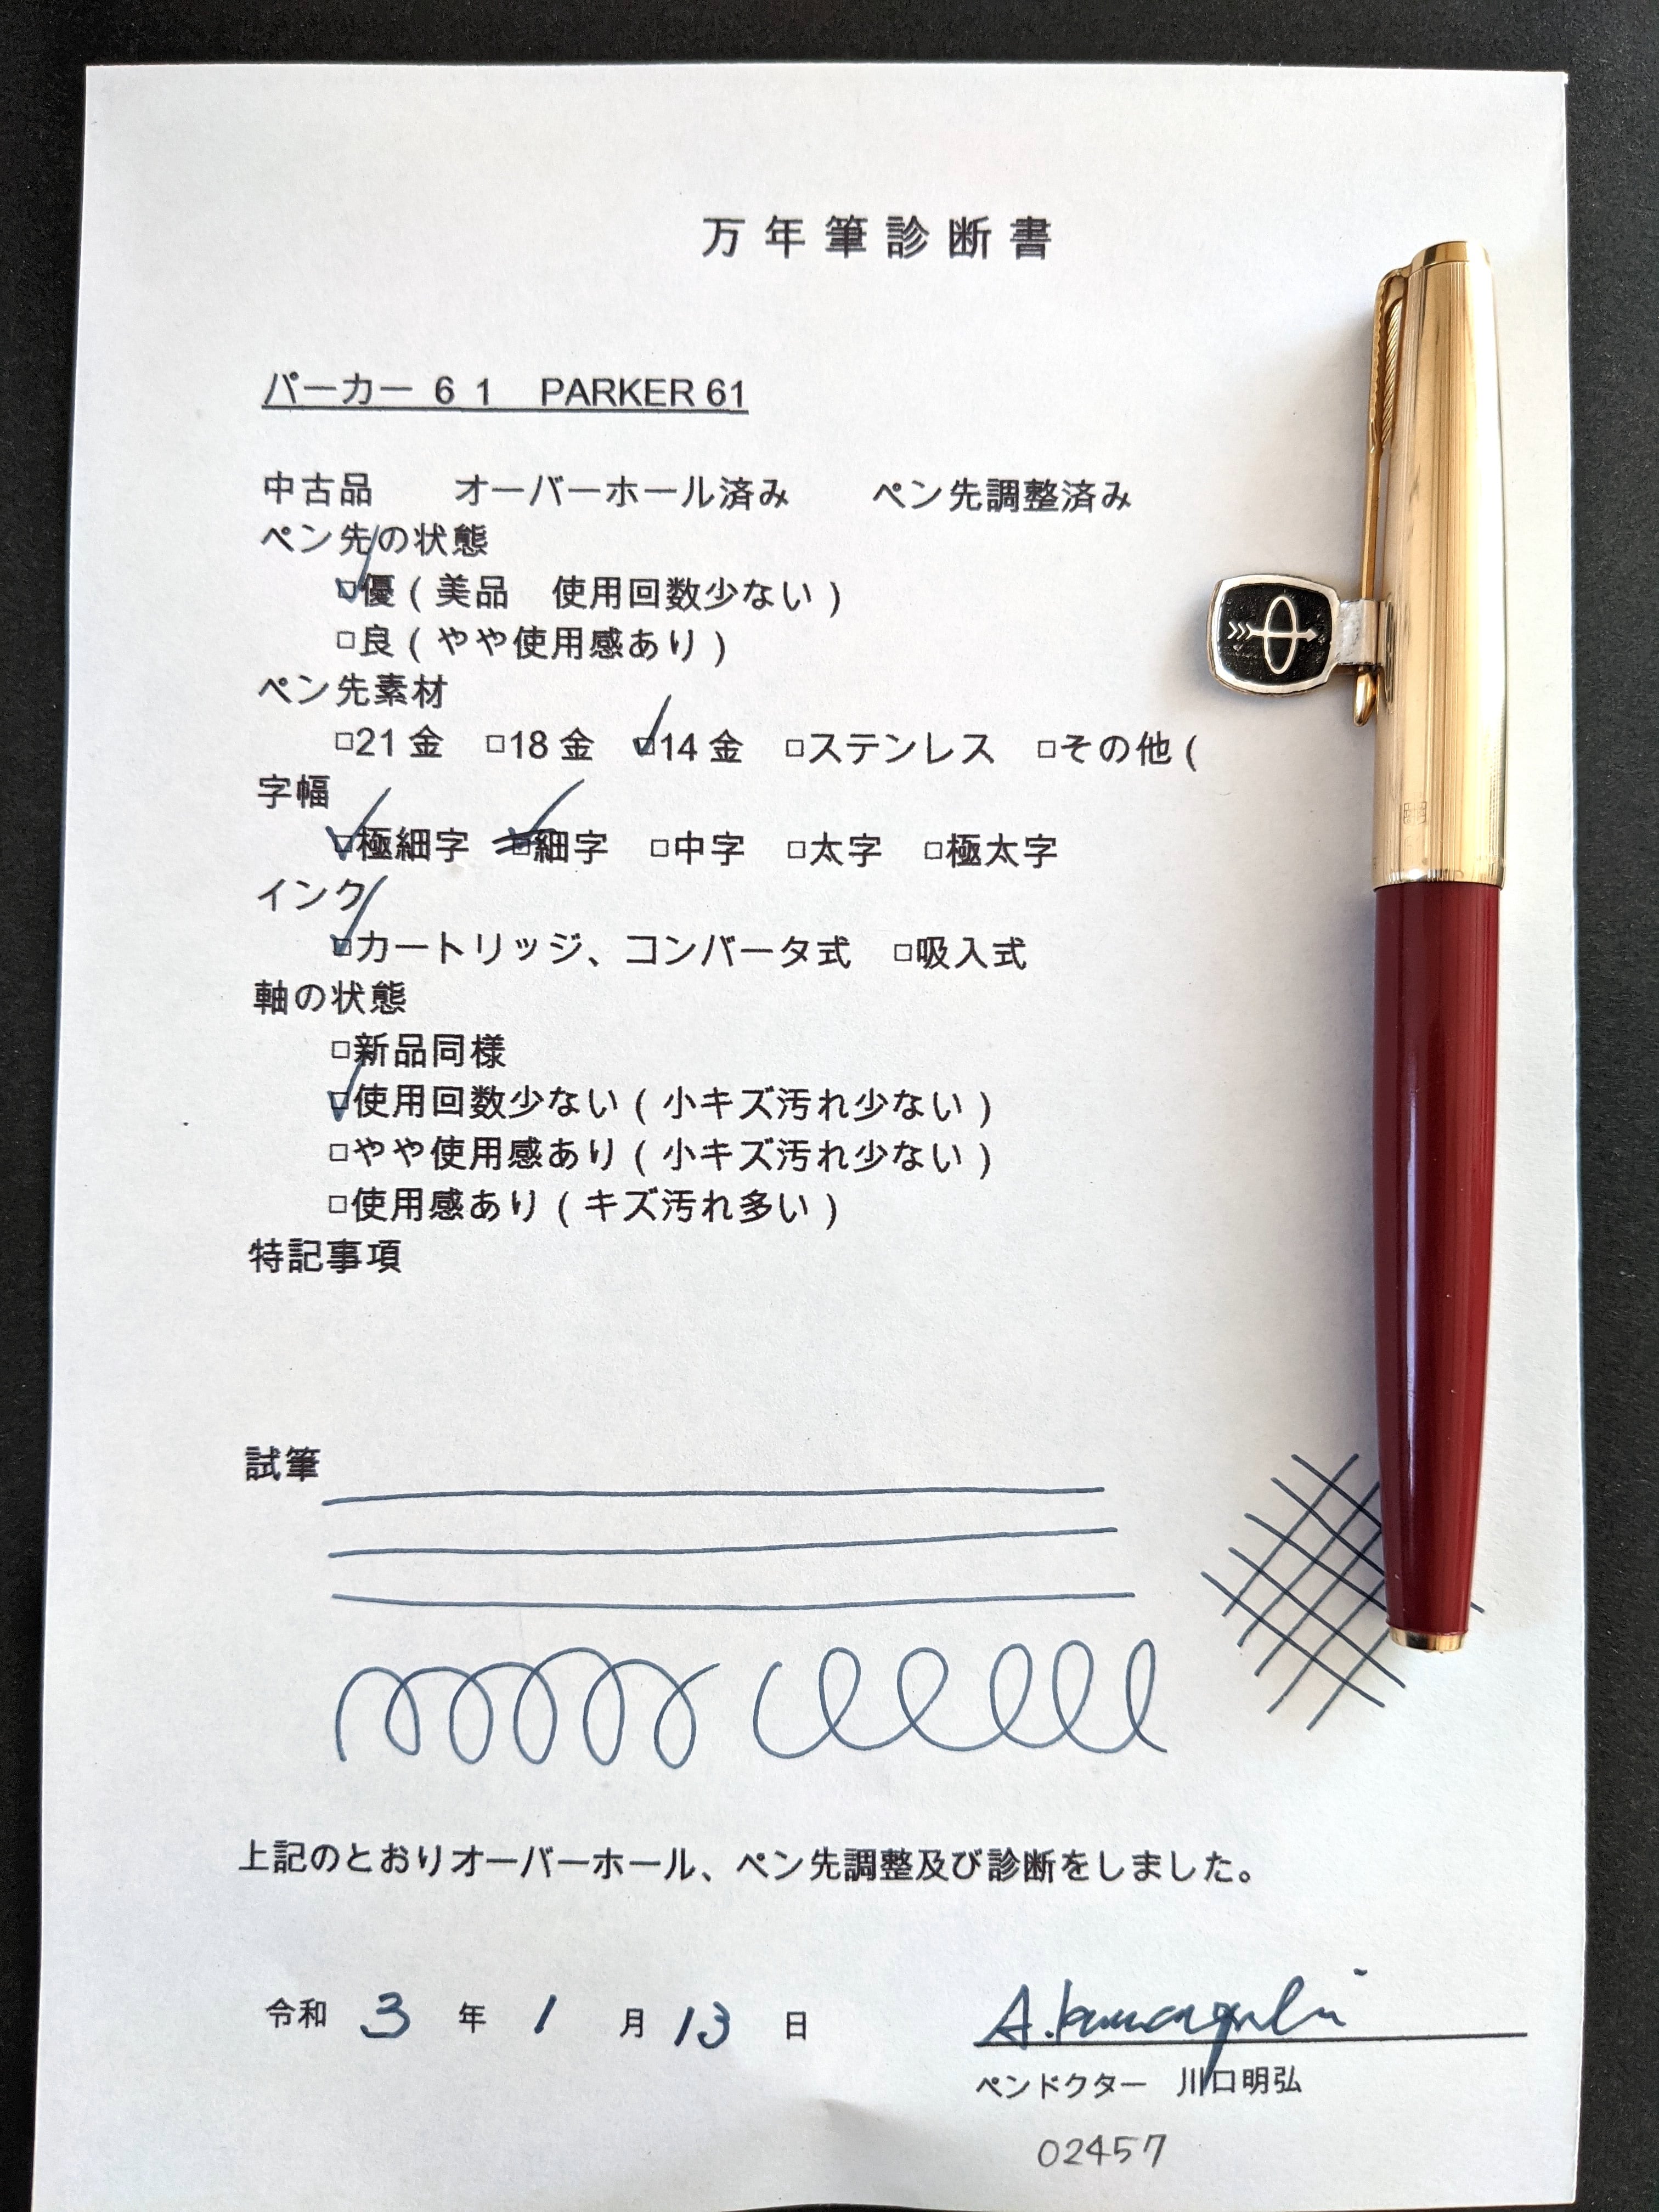 万年筆診断書
パーカー 61 PARKER 61
中古品 オーバーホール済み ペン先調整済み
ペン先の状態
□優（美品 使用回数少ない）
□良（やや使用感あり）
ペン先素材
□21金 □18金 □14金 □ステンレス □その他（
字幅
□極細字 □細字 □中字 □太字 □極太字
インク
□カートリッジ、コンバータ式 □吸入式
軸の状態
□新品同様
□使用回数少ない（小キズ汚れ少ない）
□やや使用感あり（小キズ汚れ少ない）
□使用感あり（キズ汚れ多い）
特記事項
試筆
上記のとおりオーバーホール、ペン先調整及び診断をしました。
令和 3 年 1 月 13 日
A.Kawaguchi
ペンドクター 川口明弘
02457